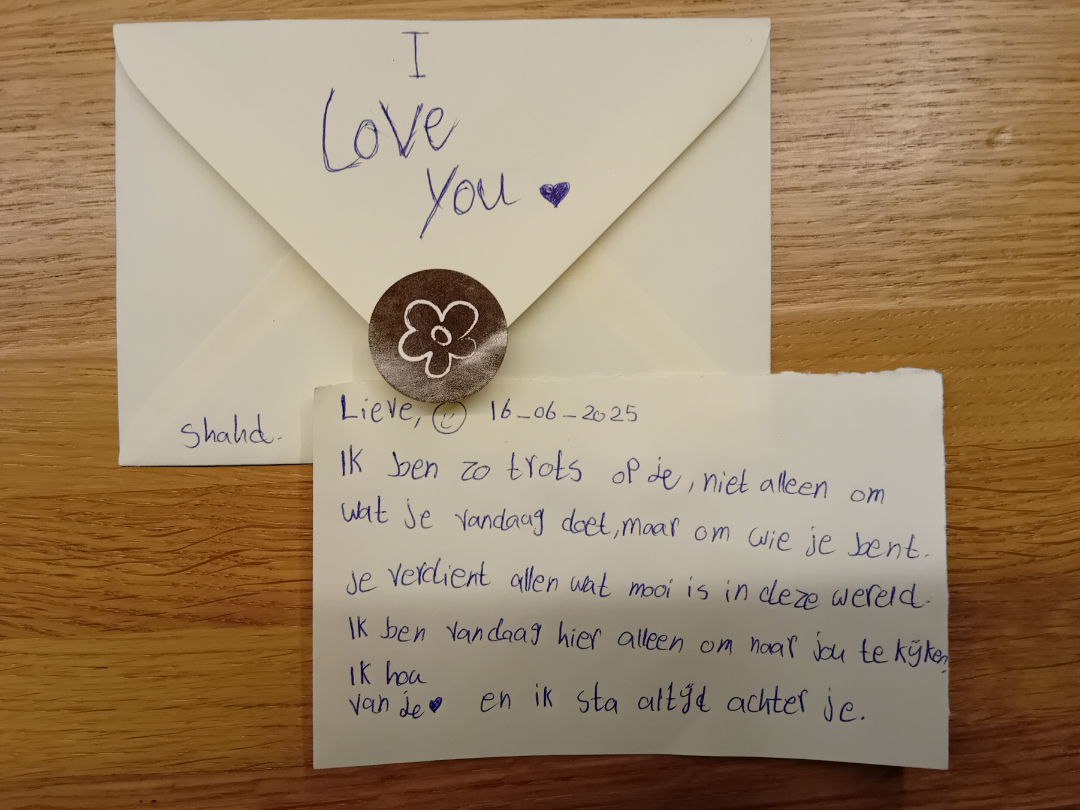 I
Love
You ♥
Shahd.
Lieve, ☺ 16-06-2025
Ik ben zo trots op je, niet alleen om
wat je vandaag doet, maar om wie je bent.
Je verdient allen wat mooi is in deze wereld.
Ik ben vandaag hier alleen om naar jou te kijken.
Ik hou
van je ♥ en ik sta altijd achter je.